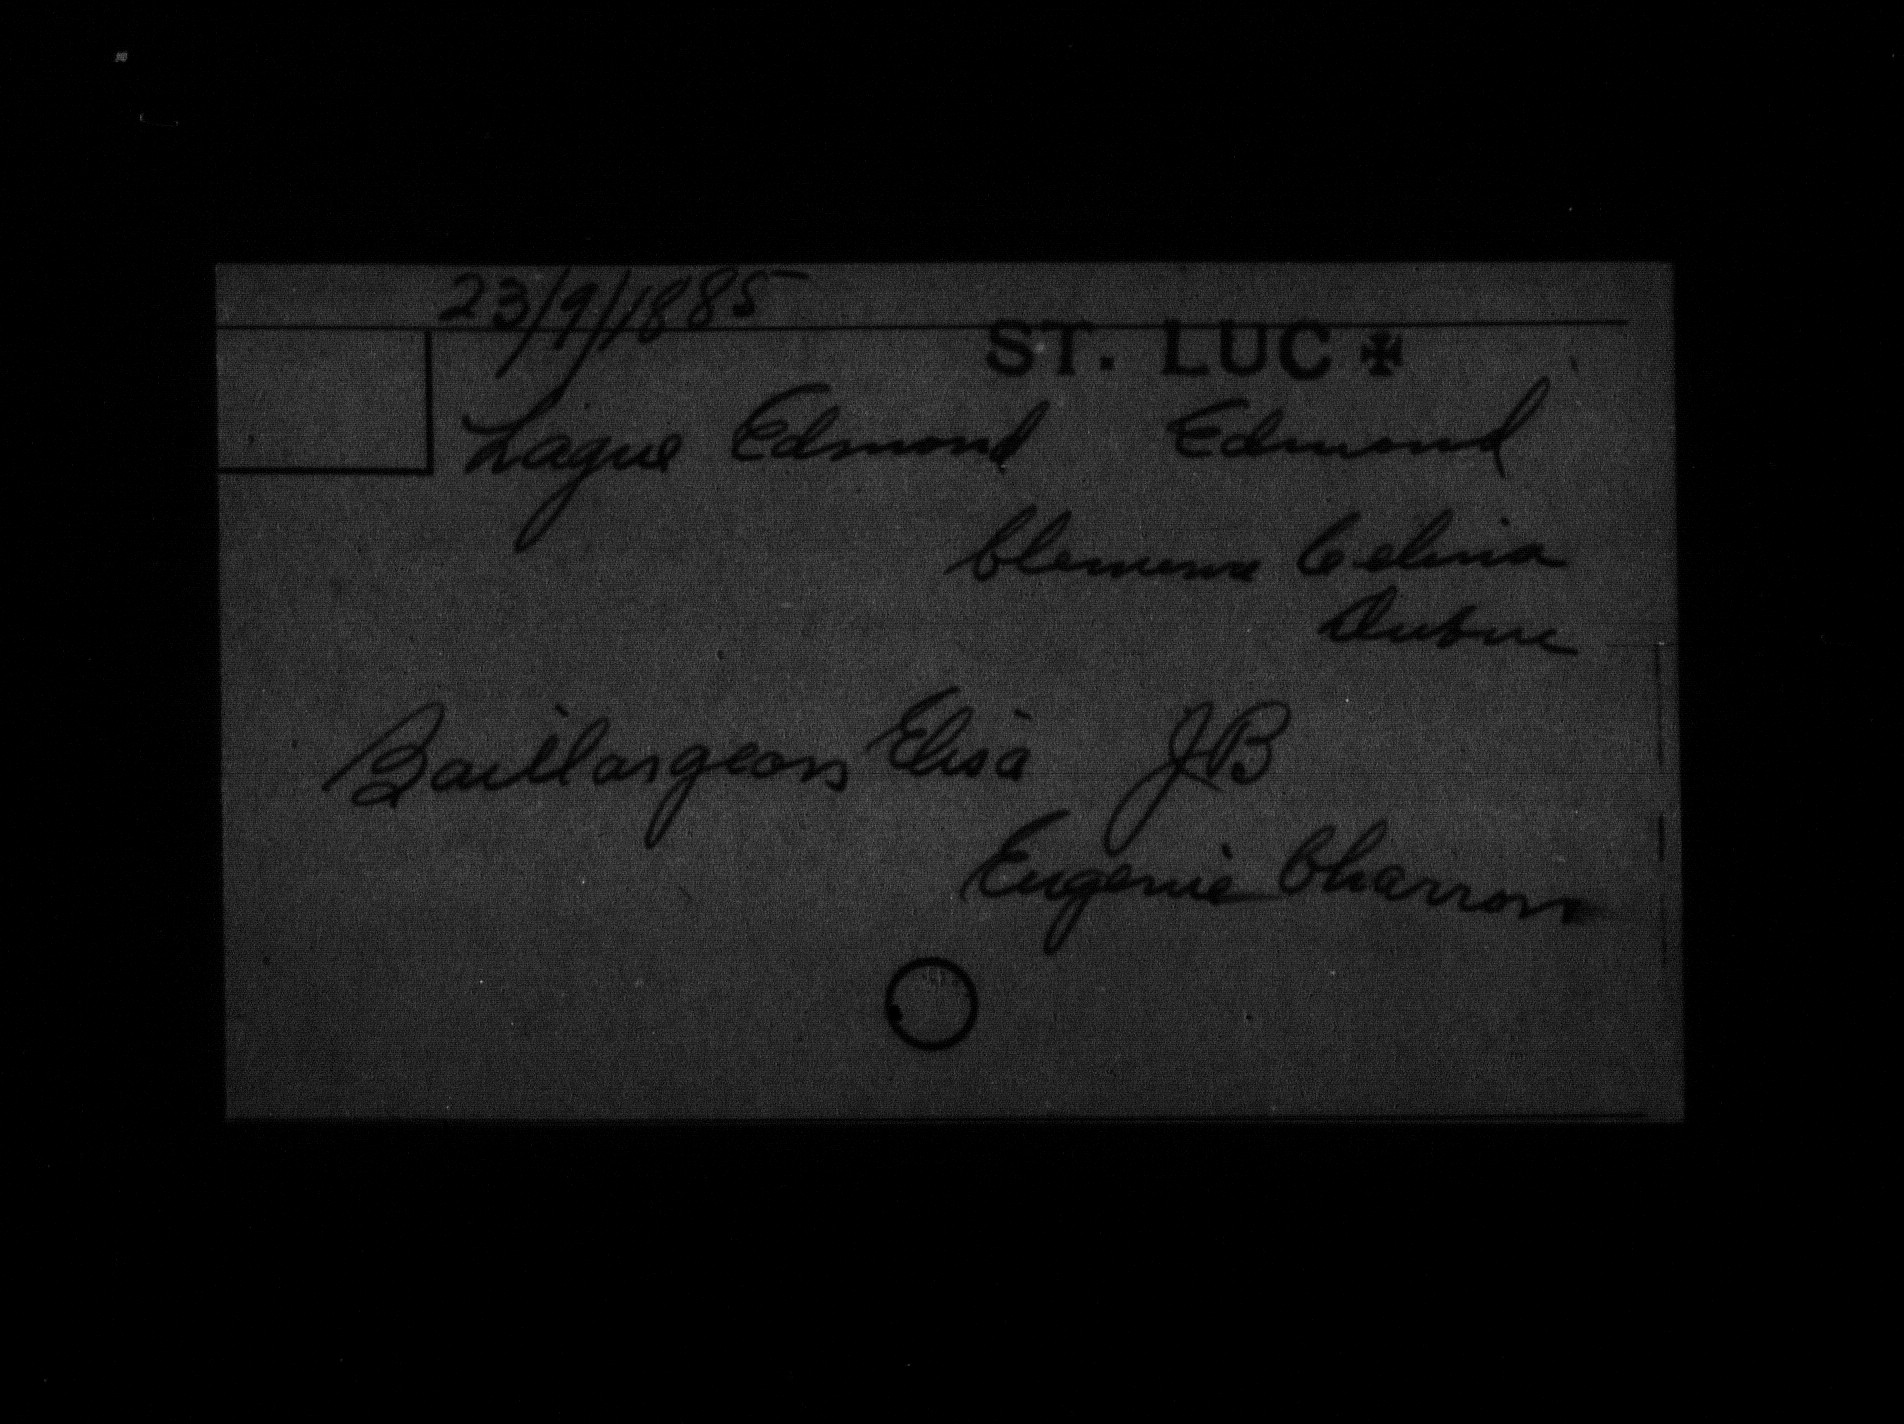 23/9/1885
ST. LUC ✠
Lague Edmond Edmond
Celina
Dubuc
Baillargeon Elisa JB
Eugenie Charron